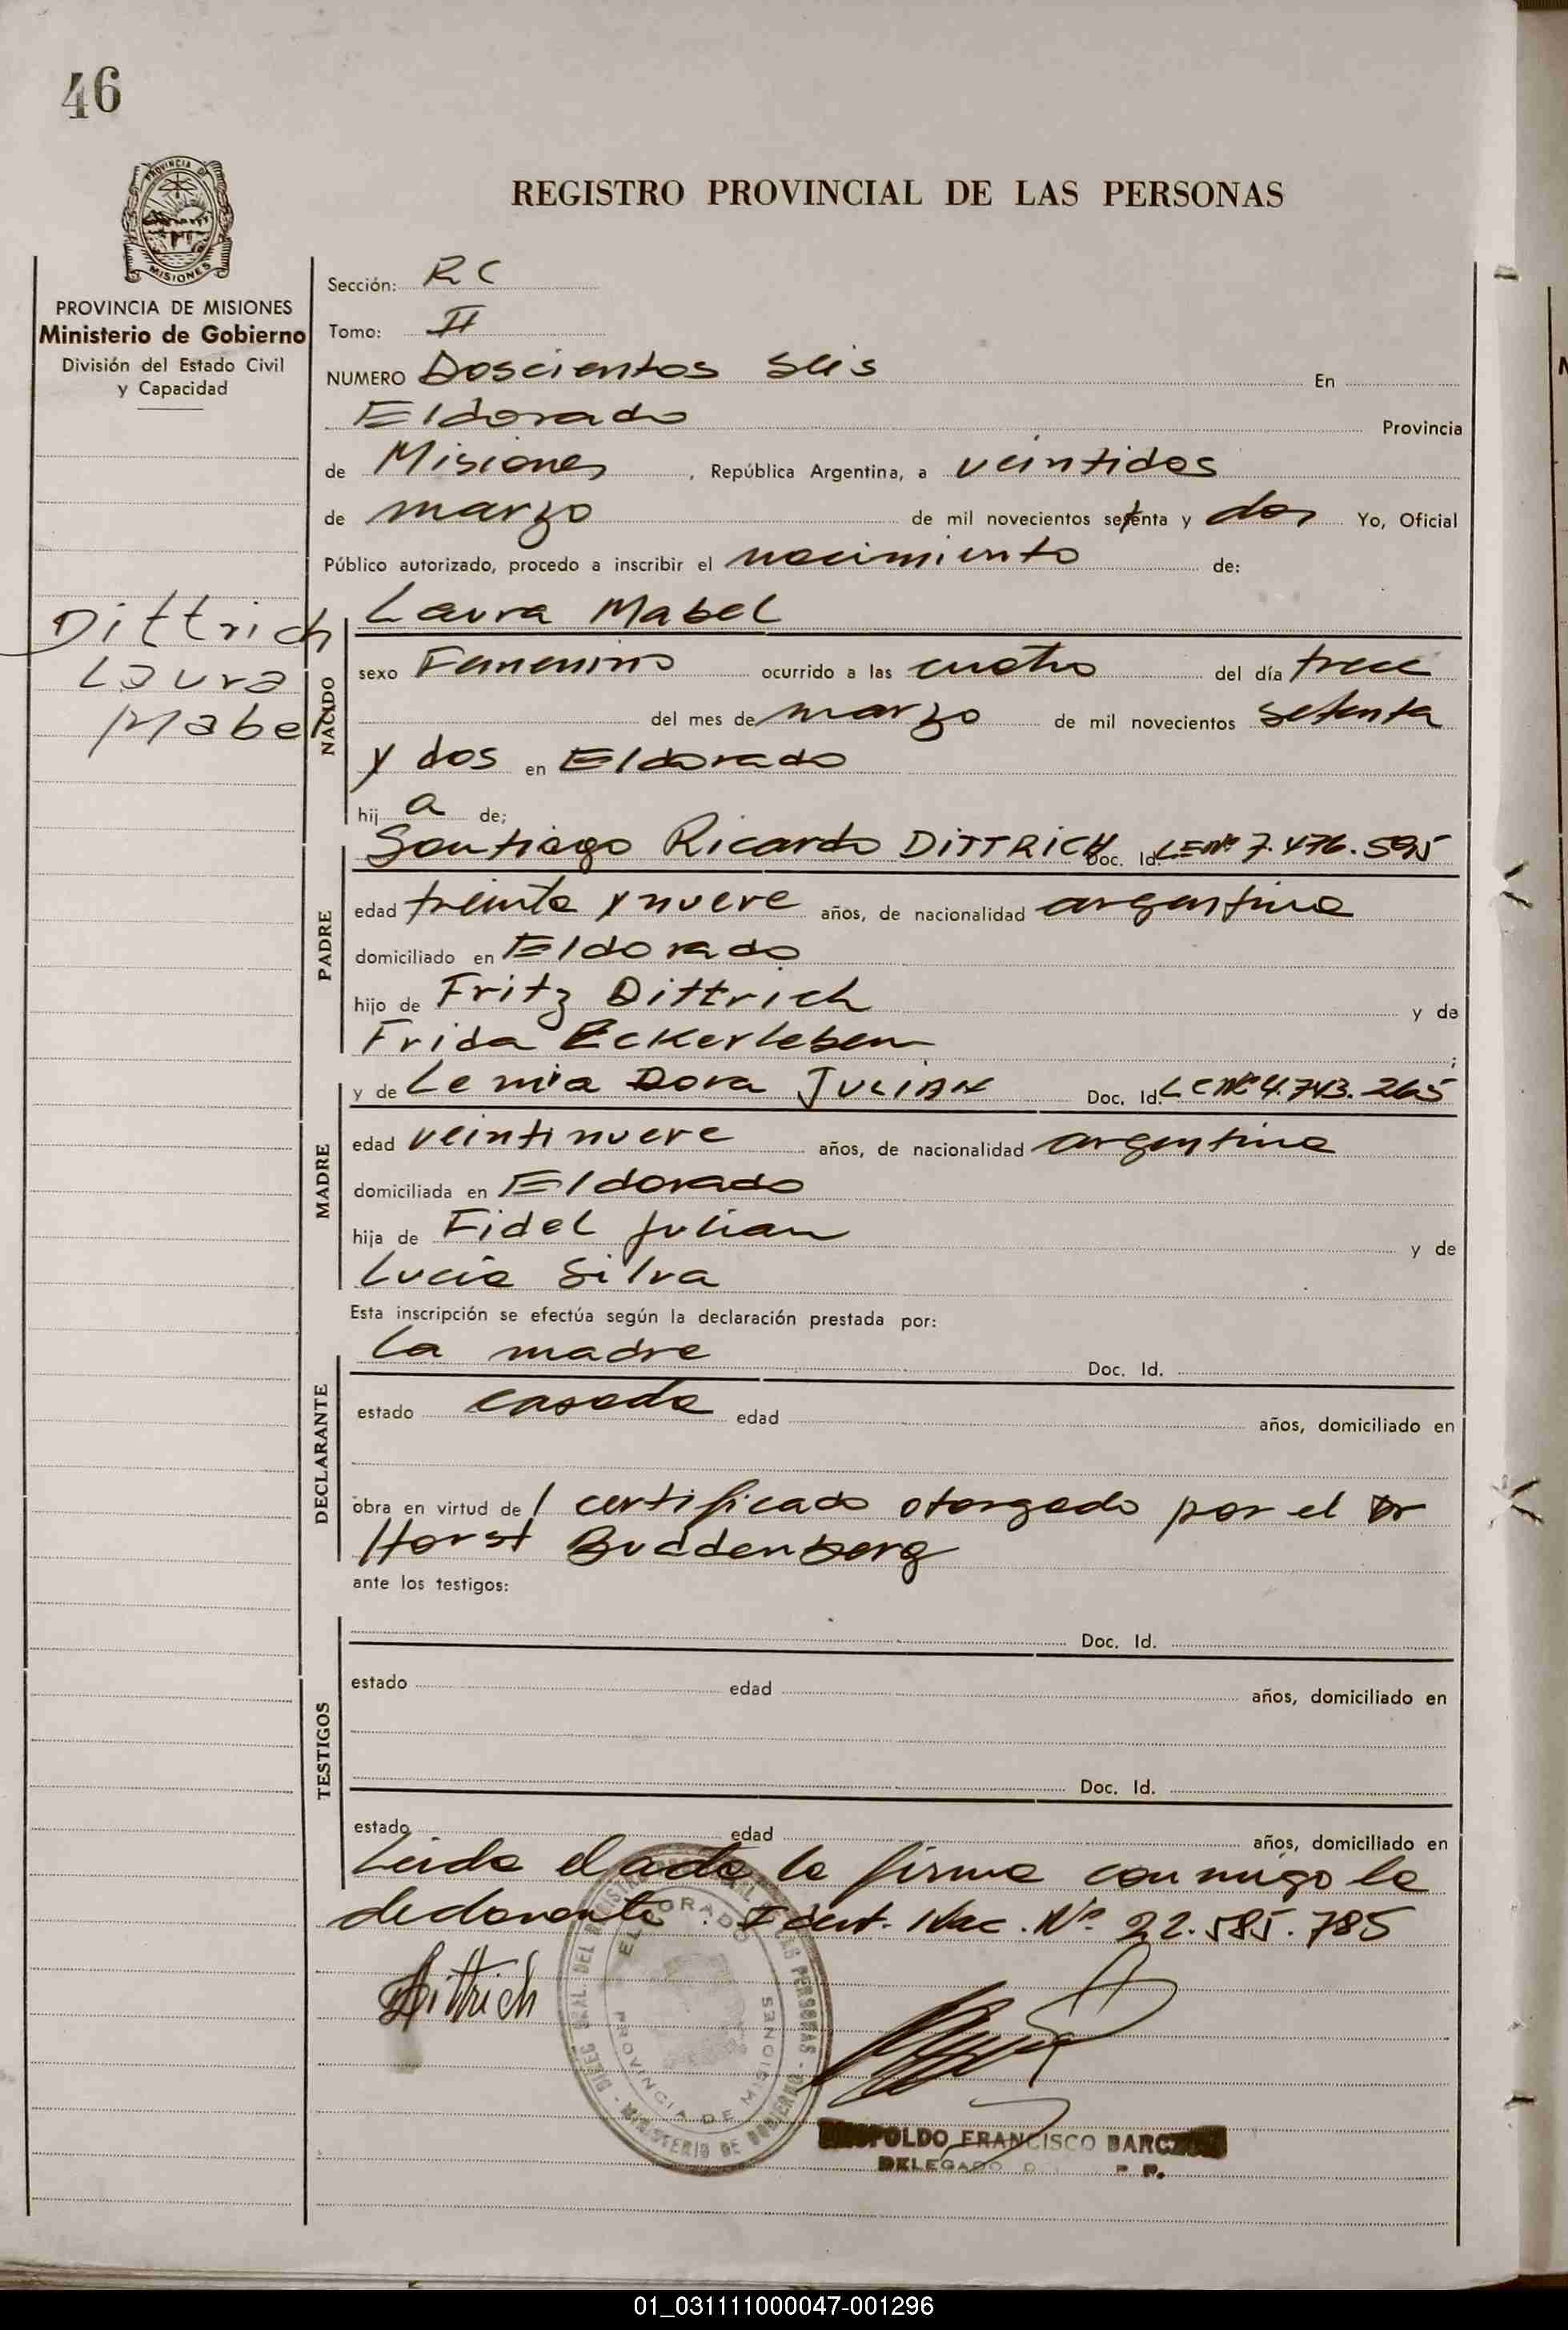 46
PROVINCIA DE
MISIONES
REGISTRO PROVINCIAL DE LAS PERSONAS
PROVINCIA DE MISIONES
Ministerio de Gobierno
División del Estado Civil
y Capacidad
Dittrich
Laura
Mabel
Sección: R C
Tomo: II
NUMERO Doscientos seis En
Eldorado Provincia
de Misiones, República Argentina, a veintidos
de marzo de mil novecientos setenta y dos Yo, Oficial
Público autorizado, procedo a inscribir el nacimiento de:
NACIDO
Laura Mabel
sexo Femenino ocurrido a las cuatro del día trece
del mes de marzo de mil novecientos setenta
y dos en Eldorado
hij a de;
PADRE
Santiago Ricardo DITTRICH Doc. Id. LE Nº 7.476.595
edad treinta y nueve años, de nacionalidad argentina
domiciliado en Eldorado
hijo de Fritz Dittrich y de
Frida Eckerleben ;
MADRE
y de Lenia Dora JULIAN Doc. Id. LC Nº 4.743.265
edad veintinueve años, de nacionalidad argentina
domiciliada en Eldorado
hija de Fidel Julian y de
Lucia Silva
Esta inscripción se efectúa según la declaración prestada por:
DECLARANTE
La madre Doc. Id.
estado casada edad años, domiciliado en
obra en virtud de 1 certificado otorgado por el Dr
Horst Buddenberg
ante los testigos:
TESTIGOS
Doc. Id.
estado edad años, domiciliado en
Doc. Id.
estado edad años, domiciliado en
Leida el acta la firma conmigo la
declarante. Ident. Nac. Nº 22.585.785
Dittrich
DIREC. GRAL. DEL REGISTRO PROVINCIAL DE LAS PERSONAS - MINISTERIO DE GOBIERNO -
ELDORADO
PROVINCIA DE MISIONES
FRANCISCO
DELEGADO
01_031111000047-001296